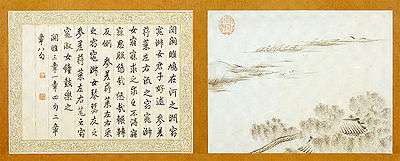 關關雎鳩在河之洲窈
窕淑女君子好逑 參差
荇菜左右流之窈窕淑
女寤寐求之求之不得寤
寐思服悠哉悠哉輾轉
反側 參差荇菜左右采
之窈窕淑女琴瑟友之
參差荇菜左右芼之窈
窕淑女鐘鼓樂之
關雎三章一章四句二章
章八句